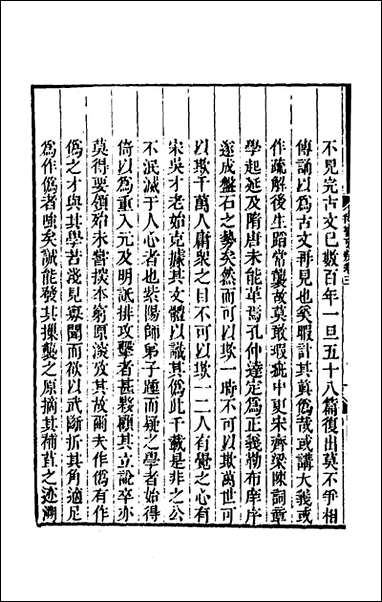 不見完古文已數百年一旦五十八篇復出莫不爭相
傳誦以爲古文再見也奚暇計其眞僞哉或講大義或
作疏解後生蹈常襲故莫敢瑕疵中更宋齊梁陳詞章
學起延及隋唐未能革焉孔仲達定爲正義勒布庠序
遂成盤石之勢矣然而可以欺一時不可以欺萬世可
以欺千萬人庸衆之目不可以欺一二人有覺之心有
宋吳才老始克據其文體以議其僞此千載是非之公
不泯滅于人心者也紫陽師弟子踵而疑之學者始得
倚以爲重入元及明詆排攻擊者甚夥顧其立說卒亦
莫得要領殆未嘗探本窮原㴱攷其故爾夫作僞有作
僞之才與其學若淺見寡聞而欲以武斷折其角適足
爲作僞者嗤矣誠能發其摷襲之原摘其補苴之迹溯